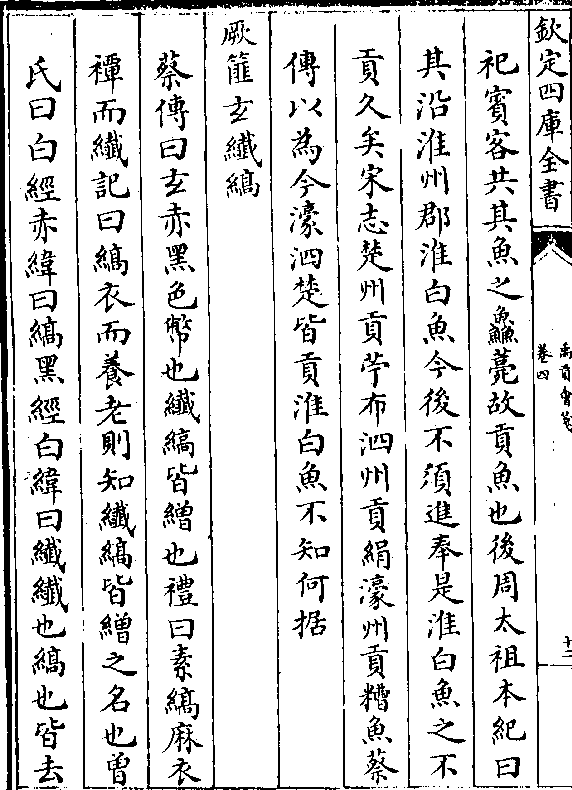 欽定四庫全書
禹貢會箋
卷四
十二
祀賔客共其魚之鱻薧故貢魚也後周太祖本紀曰
其沿淮州郡淮白魚今後不須進奉是淮白魚之不
貢久矣宋志楚州貢苧布泗州貢絹濠州貢糟魚蔡
傳以為今濠泗楚皆貢淮白魚不知何据
厥篚玄纖縞
蔡傳曰玄赤黑色幣也纖縞皆繒也禮曰素縞麻衣
禫而纖記曰縞衣而養老則知纖縞皆繒之名也曾
氏曰白經赤緯曰縞黑經白緯曰纖纖也縞也皆去